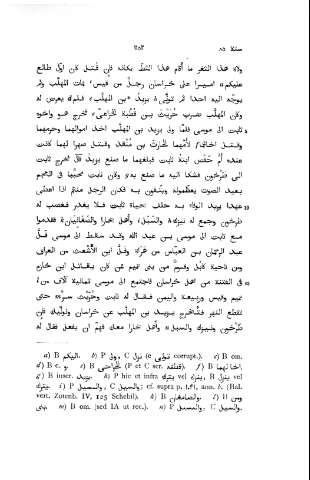 سنة ٨٥ ١١٥٢
ولاة هذا الثغر ما أقام هذا الثطّ بكانه فإن قُتل كان أوّل طالع
عليكم اميرا على خراسان رجل من قيس فمات المهلّب ولم
يوجّه اليه احدا ثم تولّى يزيد بن المهلّب فلم يعرض له
وكان المهلّب ضرب حُريث بن قُطبة الخزاعيّ فخرج هو واخوه
ثابت الى موسى فلمّا ولى يزيد بن المهلّب اخذ اموالهما وحرمهما
وقتل اخاهما لأمّهما الحارث بن منقذ وقتل صهرا لهما كانت
عنده أم حفص ابنة ثابت فبلغهما ما صنع يزيد قال فخرج ثابت
الى طرخون فشكا اليه ما صنع به وكان ثابت محبّبا فى العجم
بعيد الصوت يعظّمونه ويثقون به فكان الرجل منهم اذا اعطى
عهدا يريد الوفاء به حلف بحياة ثابت فلا يغدر فغضب له
طرخون وجمع له نيزك والسبل وأهل بخارا والصغانيان فقدموا
مع ثابت الى موسى بن عبد الله وقد سقط الى موسى فلّ
عبد الرحمان بن العبّاس من هراة وفلّ ابن الأشعث من العراق
ومن ناحية كابل وقوم من بنى تميم ممن كان يقاتل ابن خازم
فى الفتنة من اهل خراسان فاجتمع الى موسى ثمانية آلاف من
تميم وقيس وربيعة واليمن فقال له ثابت وحُريث سر حتى
تقطع النهر فتُخرج يزيد بن المهلّب عن خراسان ونوليك فإن
طرخون ونيزك والسبل وأهل بخارا معك فهمّ ان يفعل فقال له
a) B اليكم. b) P ولى, C نزل (e تولى corrupt.). c) B om.
vert. Zotenb. IV, 125 Schebil).
m) B om. (sed IA ut rec.).